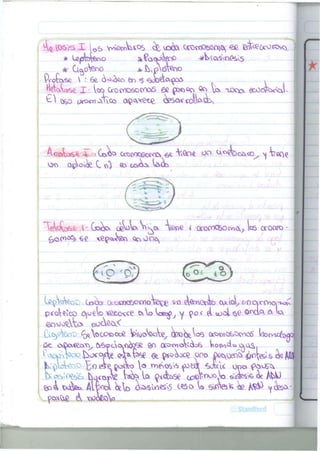 Meiosis I los miembros de cada cromosoma se entrecruzan
* Leptoteno * Paquiteno * Diasinesis
* Cigoteno * Diploteno
Profase I: Se divide en 5 subetapas
Metafase I: los cromosomas se ponen en la zona ecuatorial.
El uso cromatico aparece desarrollado.
Anafase I: Cada cromosoma se tiene un cinetocoro, y tiene
un aploide (n) en cada lado
Telofase I: Cada célula hija tiene 1 cromosoma, los cromo-
somas se reparten en una
Leptoteno: Cada cromosoma tiene un elemento axial,
proteico que lo recorre a lo largo, y por el cual se ancla a la
envuelta nuclear
Cigoteno: bivalente, donde los cromosomas homologos
se aparean, en cromatidas homologas
Paquiteno: Durante esta fase se produce una pequeña sintesis de ADN
Diploteno: En este punto la meiosis puede sufrir una pausa
Diasinesis: Durante toda la profase continua la sintesis de ADN
en el nucleo. Al final de la diasinesis cesa la sintesis de ARN y desa-
parece el nucleolo
Standford